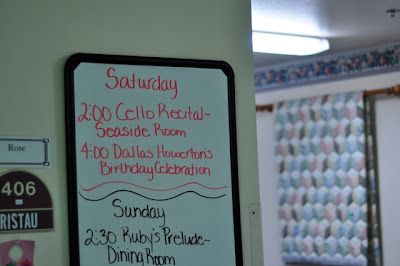 Saturday
2:00 Cello Recital-
Seaside Room
4:00 Dallas Howerton's
Birthday Celebration
Sunday
2:30 Ruby's Prelude-
Dining Room
Rose
406
RISTAU